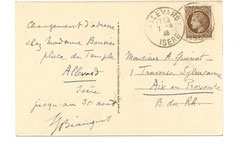 Changement d'adresse
chez Madame Bouvier
place du Temple
Allevard
Isère
jusqu'au 30 août
ALLEVARD
ISÈRE
Monsieur A. Guinot
1 Traverse
Aix en Provence
B. du Rh.